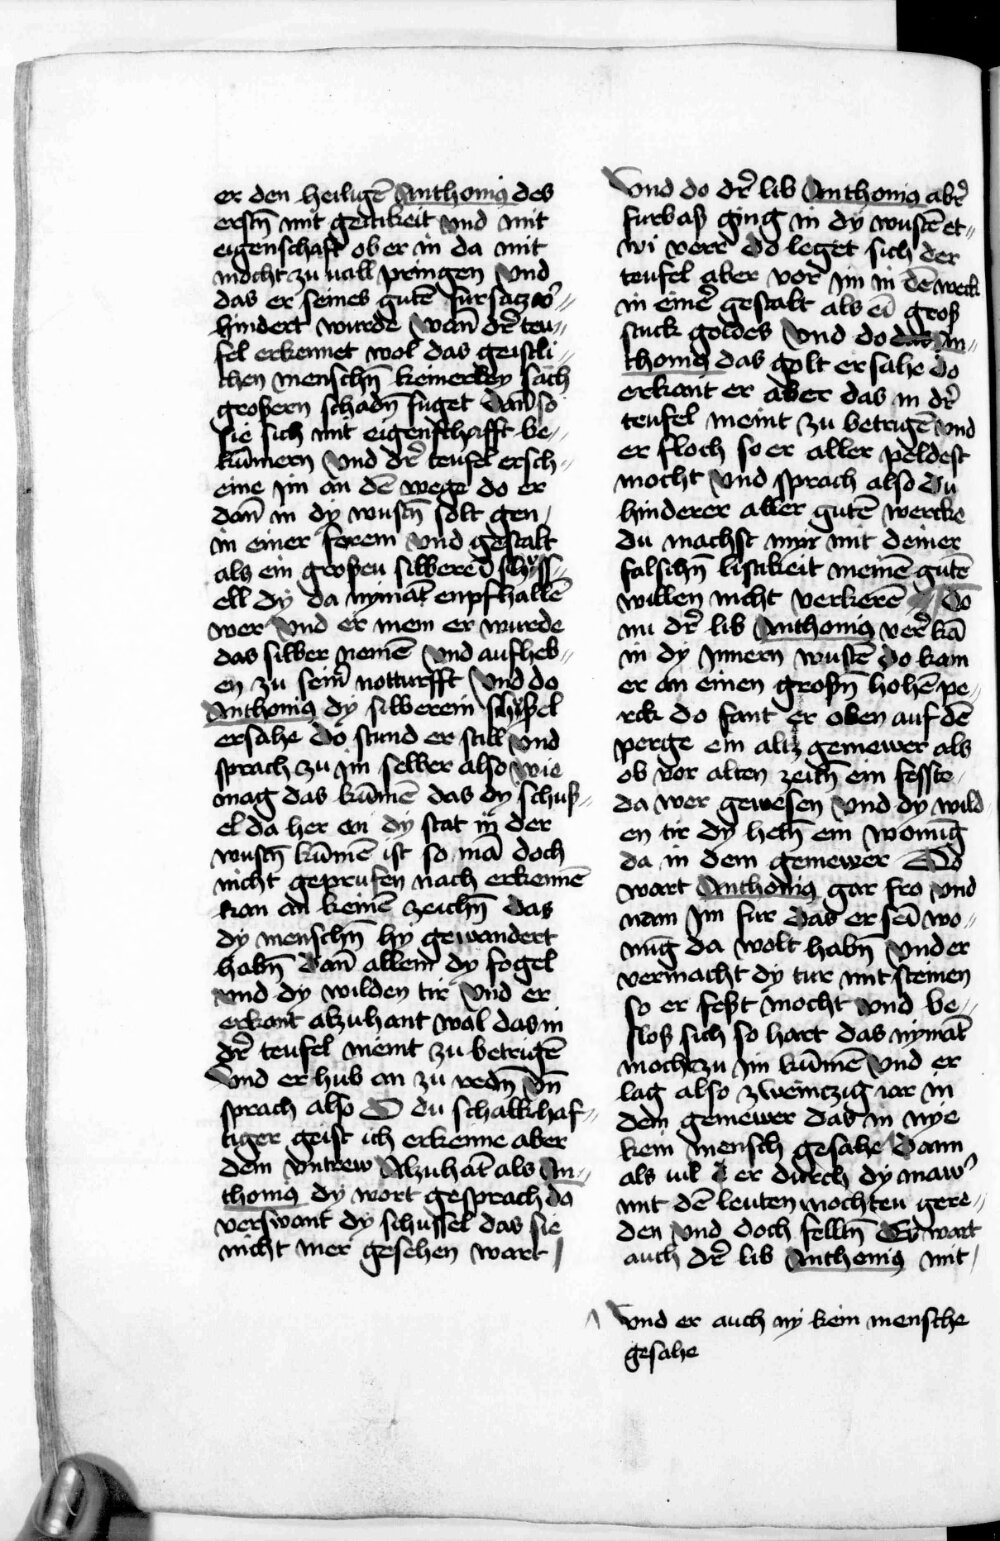 er den heiligē Anthoniꝰ des
erstn̄ mit geitikeit vnd mit
eigenschaft ob er in da mit
mocht zu uall pringen Vnd
das er seines gutē fursacz v̾⸗
hindert wurde Wan̄ dr̄ teu⸗
fel erkennet wol das geistli⸗
chen menschn̄ keinerley sach
grossern schadn̄ fuget Dan̄ so
sie sich mit eigenschafft be⸗
kūmern Vnd dr̄ teufel ersch⸗
eine Jm an dē wege do er
dan̄ in dy wustn̄ solt gen
in einer forem Vnd gestalt
als ein grossen silberen̄ schuss⸗
ell dy da nymāt enpfhallē
wer Vnd er mein er wurde
das silber nemē Vnd aufheb⸗
en zu sein̄ notturfft Vnd do
Anthoniꝰ dy silberein schussel
ersahe Do stund er still Vnd
sprach zu Jm selber also Wie
mag das kūmē das dy schuss⸗
el da her an dy stat in der
wustn̄ kūmē ist so mā doch
nicht geprufen nach erkennē
kan an keinē zeichn̄ Das
dy menschn̄ hy gewandert
habn̄ Dan̄ allein dy fogel
Vnd dy wilden tir Vnd er
erkant alzuhant wal das in
dr̄ teufel meint zu betrigē
Vnd er hub an zu redn̄ Vn̄
sprach also O du schalckhaf⸗
tiger geist ich erkenne aber
dein Vntrew Alzuhāt als An⸗
thoniꝰ dy wort gesprach da
verswant dy schussel das sie
nicht mer gesehen wart
Vnd do dr̄ lib Anthoniꝰ abr̄
furbas ging in dy wustē et⸗
wi verr Do leget sich der
teufel aber vor Jm in dē weck
in einē gestalt als eī gross
stuck goldes Vnd do An⸗
thoniꝰ das golt ersahe Do
erkant er aber das in dr̄
teufel meint zu betrigē Vnd
er floch so er aller peldest
mocht Vnd sprach also Du
hinderer aller gutē wercke
du machst myr mit deiner
falschn̄ listikeit meinē gutē
willen nicht verkerē Do
nu dr̄ lib Anthoniꝰ ver̄ kā
in dy Jnnern wustē Do kam
er an einen grossn̄ hohē pe⸗
rck do fant er oben auf dē
perge ein altz gemewer als
ob vor alten zeitn̄ ein feste
da wer gewesen Vnd dy wild
en tir dy hetn̄ ein womūg
da in dem gemewer Do
wart Anthoniꝰ gar fro Vnd
nam Jm fur Das er seī wo⸗
nūg da wolt habn̄ Vnd er
vermacht dy tur mit steinen
so er fest mocht Vnd be⸗
slos sich so hart das nymāt
mocht zu Jm kūmē Vnd er
lag also zweinczig iar in
dem gemewer das in nye
kein mensch gesahe Dann
als uil er durch dy maw̾
mit dē leuten mochten gere⸗
den Vnd doch selltn̄ Es wart
auch dr̄ lib Anthoniꝰ mit
Vnd er auch ny kein mensche
gesahe